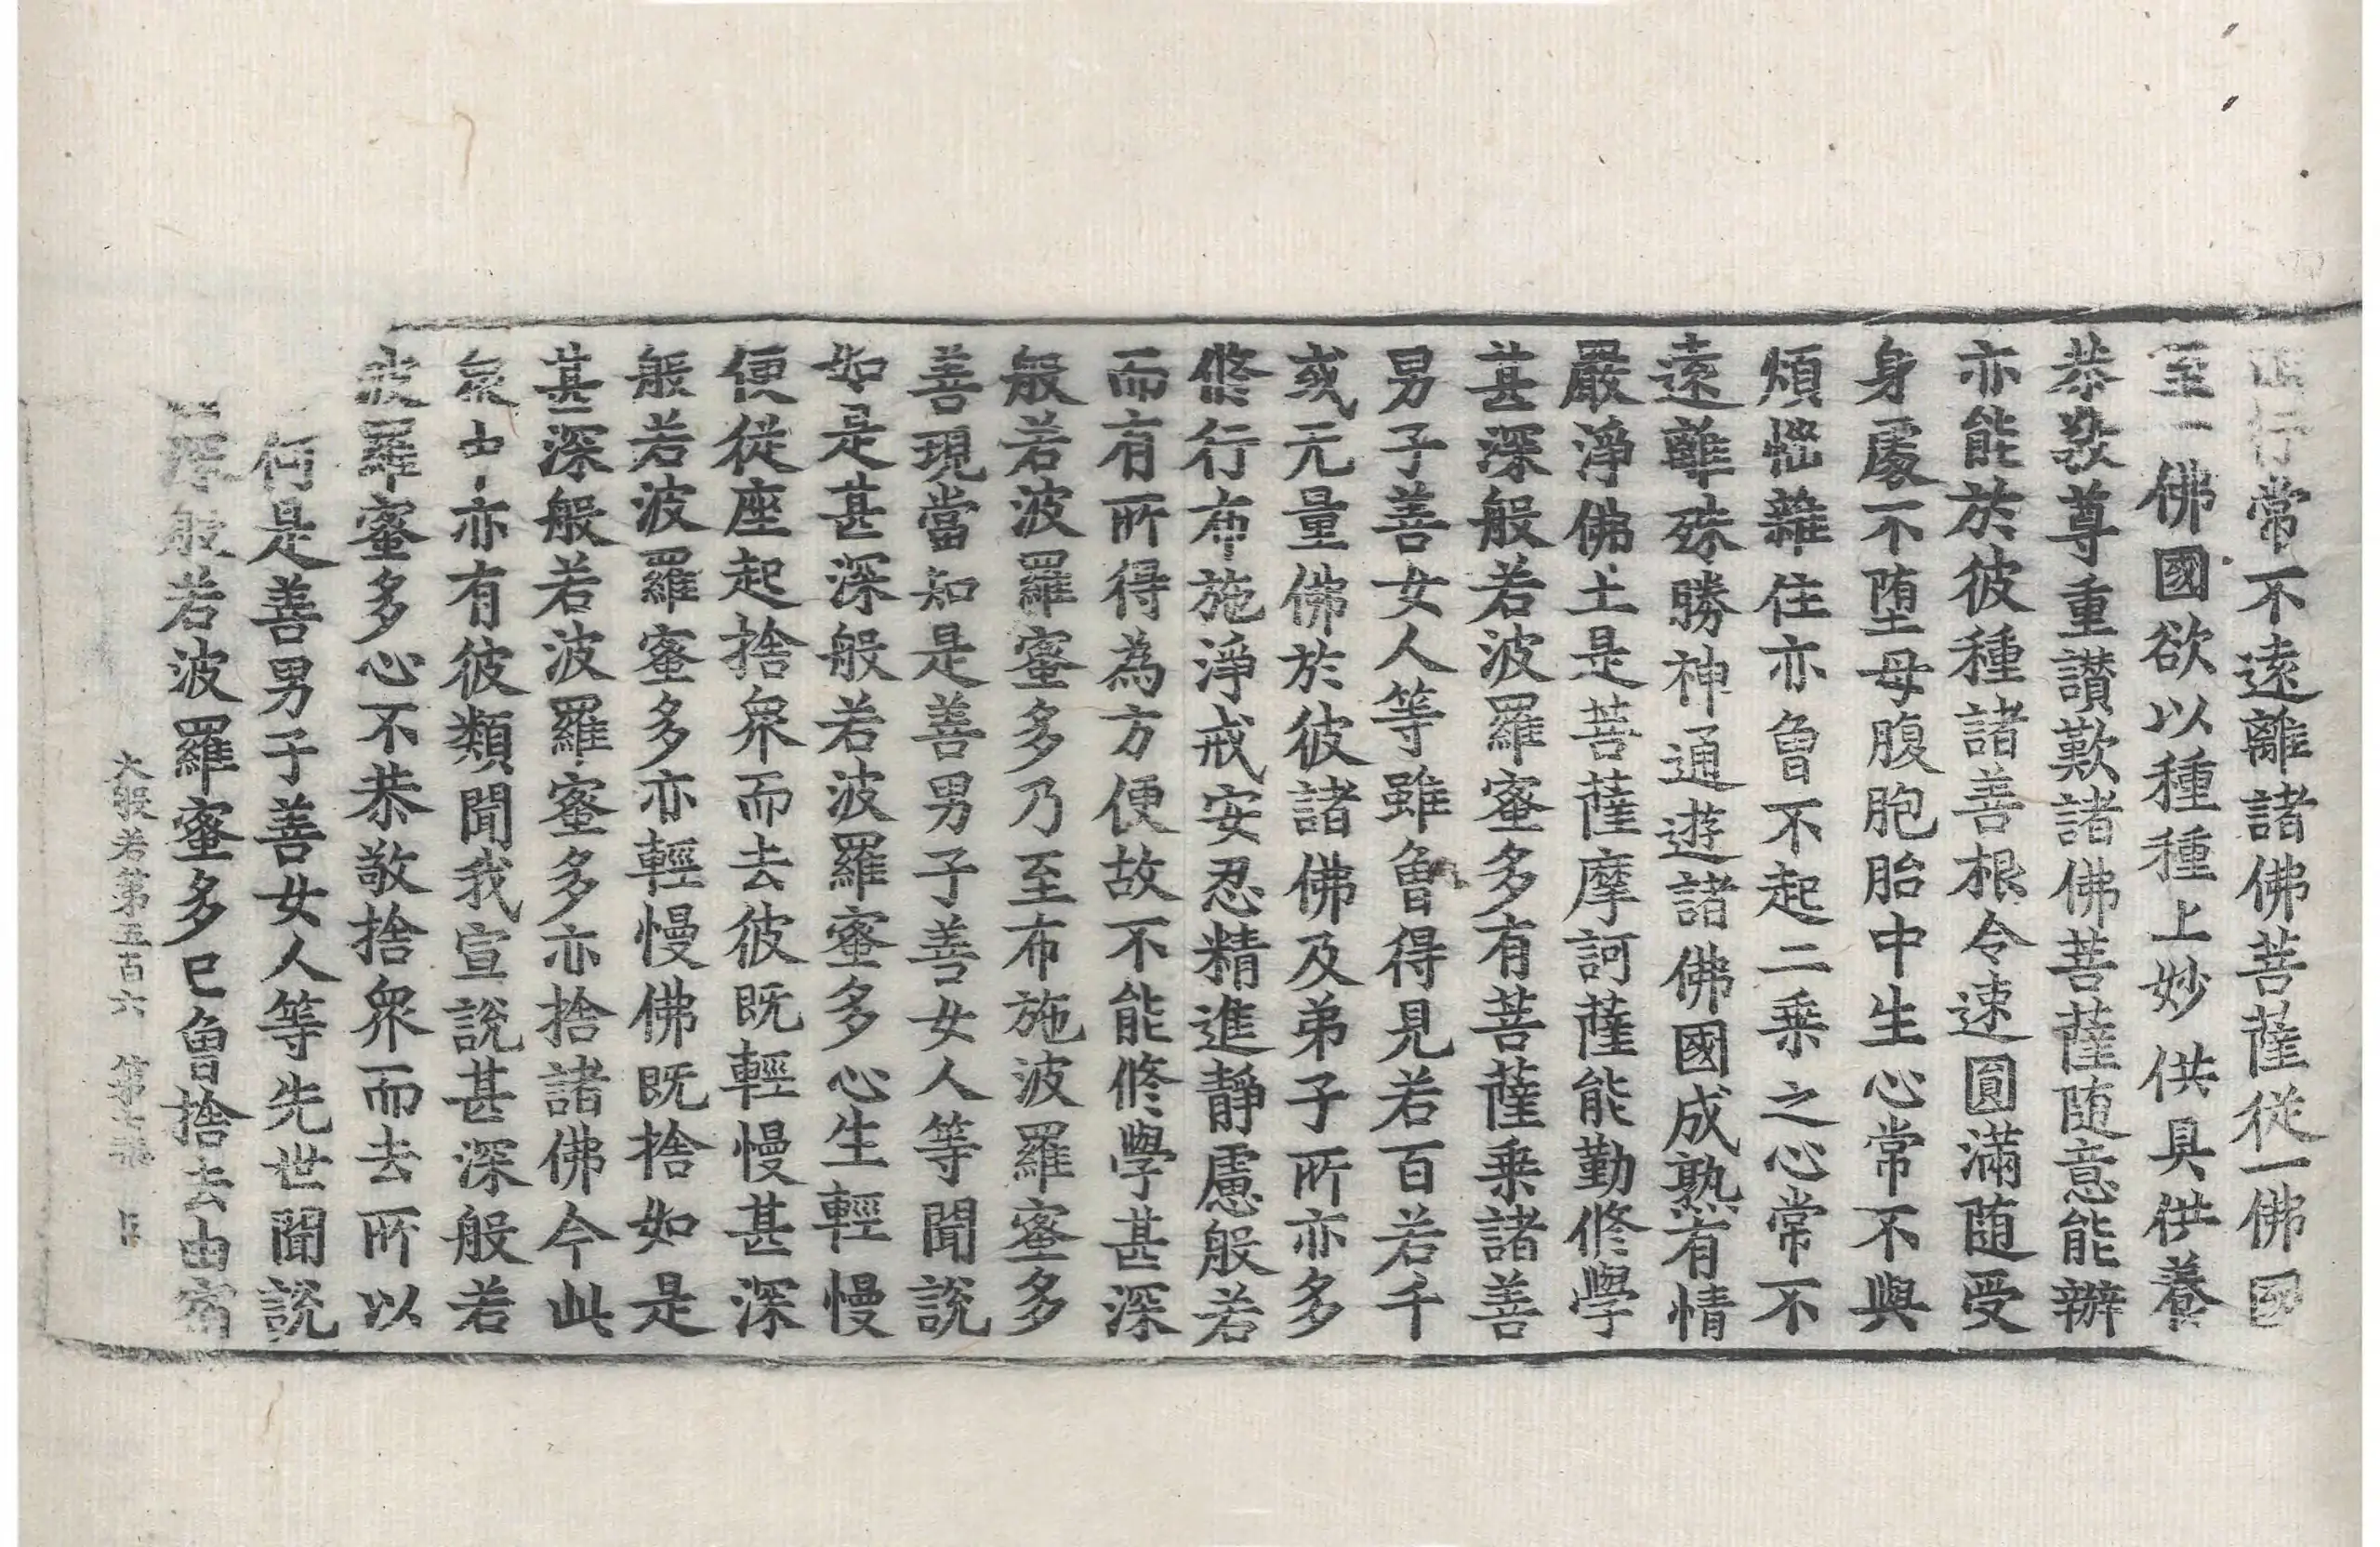 行常不遠離諸佛菩薩從一佛國
至一佛國欲以種種上妙供具供養
恭敬尊重讃歎諸佛菩薩随意能辦
亦能於彼種諸善根令速圓滿随受
身處不堕母腹胞胎中生心常不與
煩惱雜住亦曾不起二乗之心常不
遠離殊勝神通遊諸佛國成熟有情
嚴淨佛土是菩薩摩訶薩能勤修學
甚深般若波羅蜜多有菩薩乗諸善
男子善女人等雖曾得見若百若千
或无量佛於彼諸佛及弟子所亦多
修行布施淨戒安忍精進靜慮般若
而有所得為方便故不能修學甚深
般若波羅蜜多乃至布施波羅蜜多
善現當知是善男子善女人等聞說
如是甚深般若波羅蜜多心生輕慢
便從座起捨衆而去彼既輕慢甚深
般若波羅蜜多亦輕慢佛既捨如是
甚深般若波羅蜜多亦捨諸佛今此
衆中亦有彼類聞我宣說甚深般若
波羅蜜多心不恭敬捨衆而去所以
何是善男子善女人等先世聞說
深般若波羅蜜多已曾捨去由宿
大般若第五百六 第七張